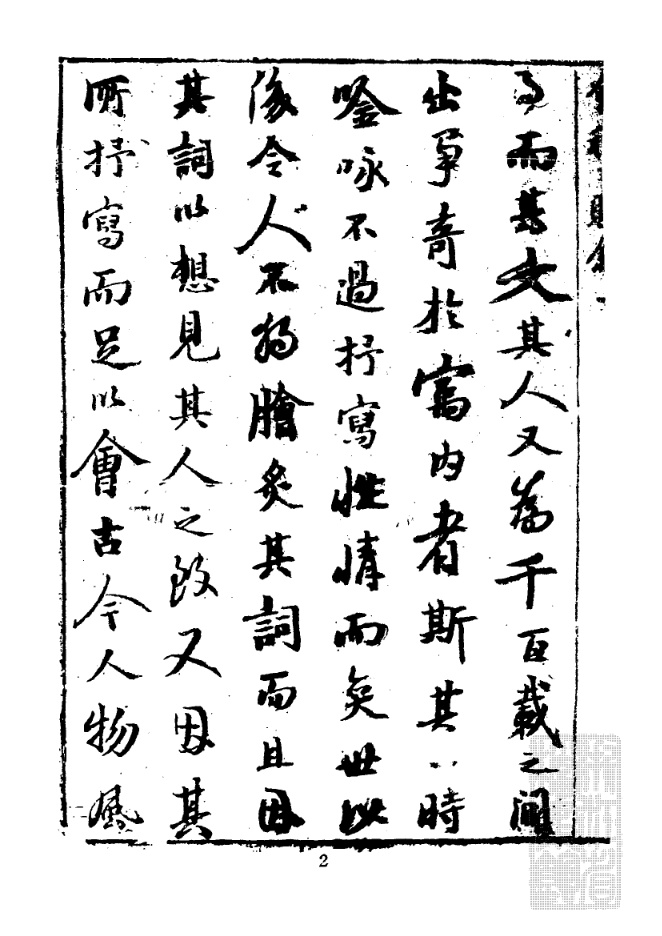 而其文其人又為千百載之間
出爭奇於寓內者斯其一時
唫咏不過抒寫性情而奚世以
後令人不獨膾炙其詞而且因
其詞以想見其人之致又因其
所抒寫而足以會古今人物風
2